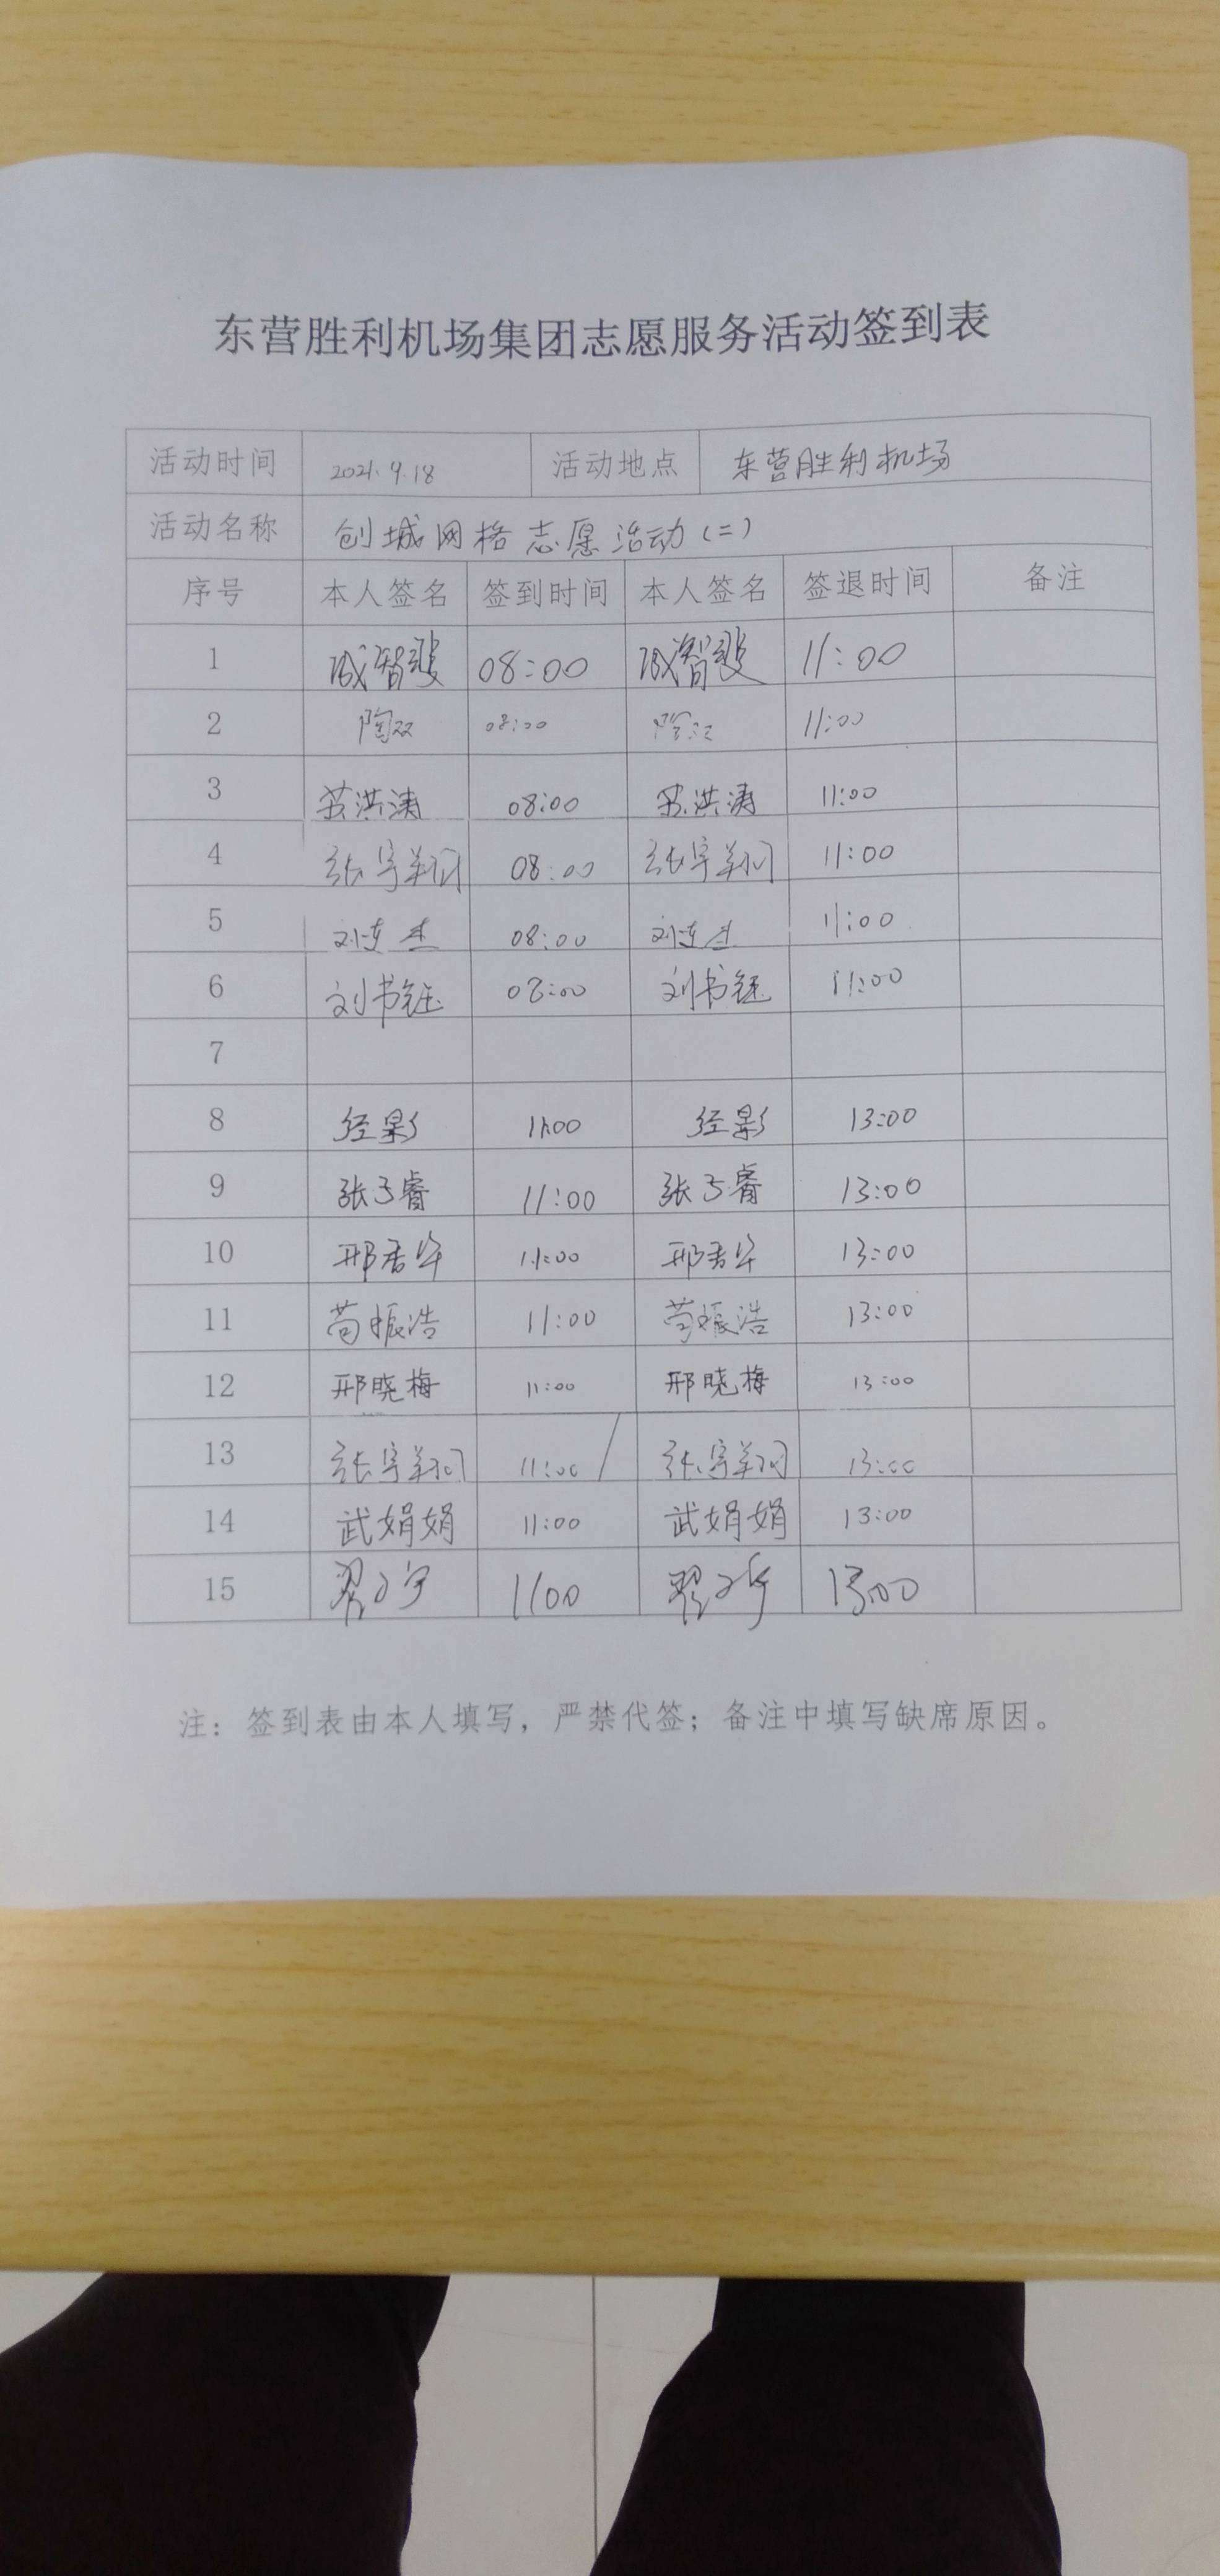 东营胜利机场集团志愿服务活动签到表
活动时间 2021.9.18 活动地点 东营胜利机场
活动名称 创城网格志愿活动(二)
序号 本人签名 签到时间 本人签名 签退时间 备注
1 08:00 11:00
2 陶双 08:00 11:00
3 苏洪涛 08:00 苏洪涛 11:00
4 张宇翔 08:00 张宇翔 11:00
5 刘连杰 08:00 刘连杰 11:00
6 刘书钰 08:00 刘书钰 11:00
7
8 经影 11:00 经影 13:00
9 张予睿 11:00 张予睿 13:00
10 邢君华 11:00 邢君华 13:00
11 苟振浩 11:00 苟振浩 13:00
12 邢晓梅 11:00 邢晓梅 13:00
13 张宇翔 11:00 张宇翔 13:00
14 武娟娟 11:00 武娟娟 13:00
15 1100 13:00
注：签到表由本人填写，严禁代签；备注中填写缺席原因。